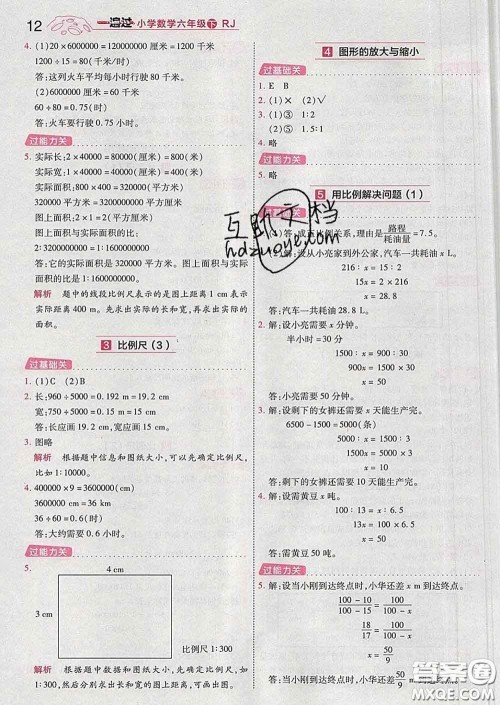 12 一遍过 小学数学六年级 下 RJ
4. (1)20×6000000=120000000(厘米)=1200(千米)
1200÷15=80(千米/时)
答:这列火车平均每小时行驶 80 千米。
(2)0.8×6000000=4800000(厘米)=48(千米)
60÷80=0.75(时)
答:火车要行驶 0.75 小时。
过能力关
5. 实际长:2×40000=80000(厘米)=800(米)
实际宽:1×40000=40000(厘米)=400(米)
实际面积:800×400=320000(平方米)
320000平方米=3200000000平方厘米
图上面积:2×1=2(平方厘米)
图上面积与实际面积的比:
2:3200000000=1:1600000000
答:它的实际面积是 320000 平方米,图上面积与实际面积的比是 1:1600000000。
解析 题中的线段比例尺表示的是图上距离 1 cm 表示实际距离 400 m。先求出实际的长和宽,再求出实际面积。
3 比例尺(3)
过基础关
1. (1)C (2)B
2. 长:960÷5000=0.192(m) 0.192 m=19.2 cm
宽:750÷5000=0.15(m) 0.15 m=15 cm
答:长应画 19.2 cm,宽应画 15 cm。
3. 图略
解析 根据题中信息和图纸大小,可以先确定比例尺,如 1:10000。
4. 400000×9=3600000(cm)
3600000 cm=36 km
36÷60=0.6(时)
答:大约需要 0.6 小时。
过能力关
5.
4 cm
3 cm
比例尺 1:300
解析 根据题中数据和图纸大小,可先确定比例尺,如 1:300,然后分别求出长和宽的图上距离,再画出平面图。
4 图形的放大与缩小
过基础关
1. E B
2. (1)× (2)√
3. (1)③ 1:2
(2)⑤ 1.5:1
4. 略
过能力关
5. 略
5 用比例解决问题(1)
过基础关
1. (1)答:成正比例关系,理由是 路程/耗油量
(2)解:设从小亮家到外公家,汽车一共耗油 x L。
216:15=
15x=
x=28.8
答:汽车一共耗油 28.8 L。
2. 解:设小亮需要 50 分钟。
半小时=30分钟
1500:30=
1500x=
x=50
答:小亮需要 50 分钟。
3. 解:设剩下的女裤还需要 x 天能生产完。
6500-1500=5000(条)
1500:
1500x=
x=
答:剩下的女裤还需要 10 天能生产完。
4. 解:设需黄豆 x 吨。
100:13=x:6.5
13x=100×6.5
x=50
答:需黄豆 50 吨。
过能力关
5. 解:设当小刚到达终点时,小华还差 x m 到达终点。
(100-10)/100=(100-x)/
18/=/100
x=50/9
答:当小刚到达终点时,小华还差 50/9 m到达终点。
互助文档
hdzuoye.com
答案圈
MXQE.COM